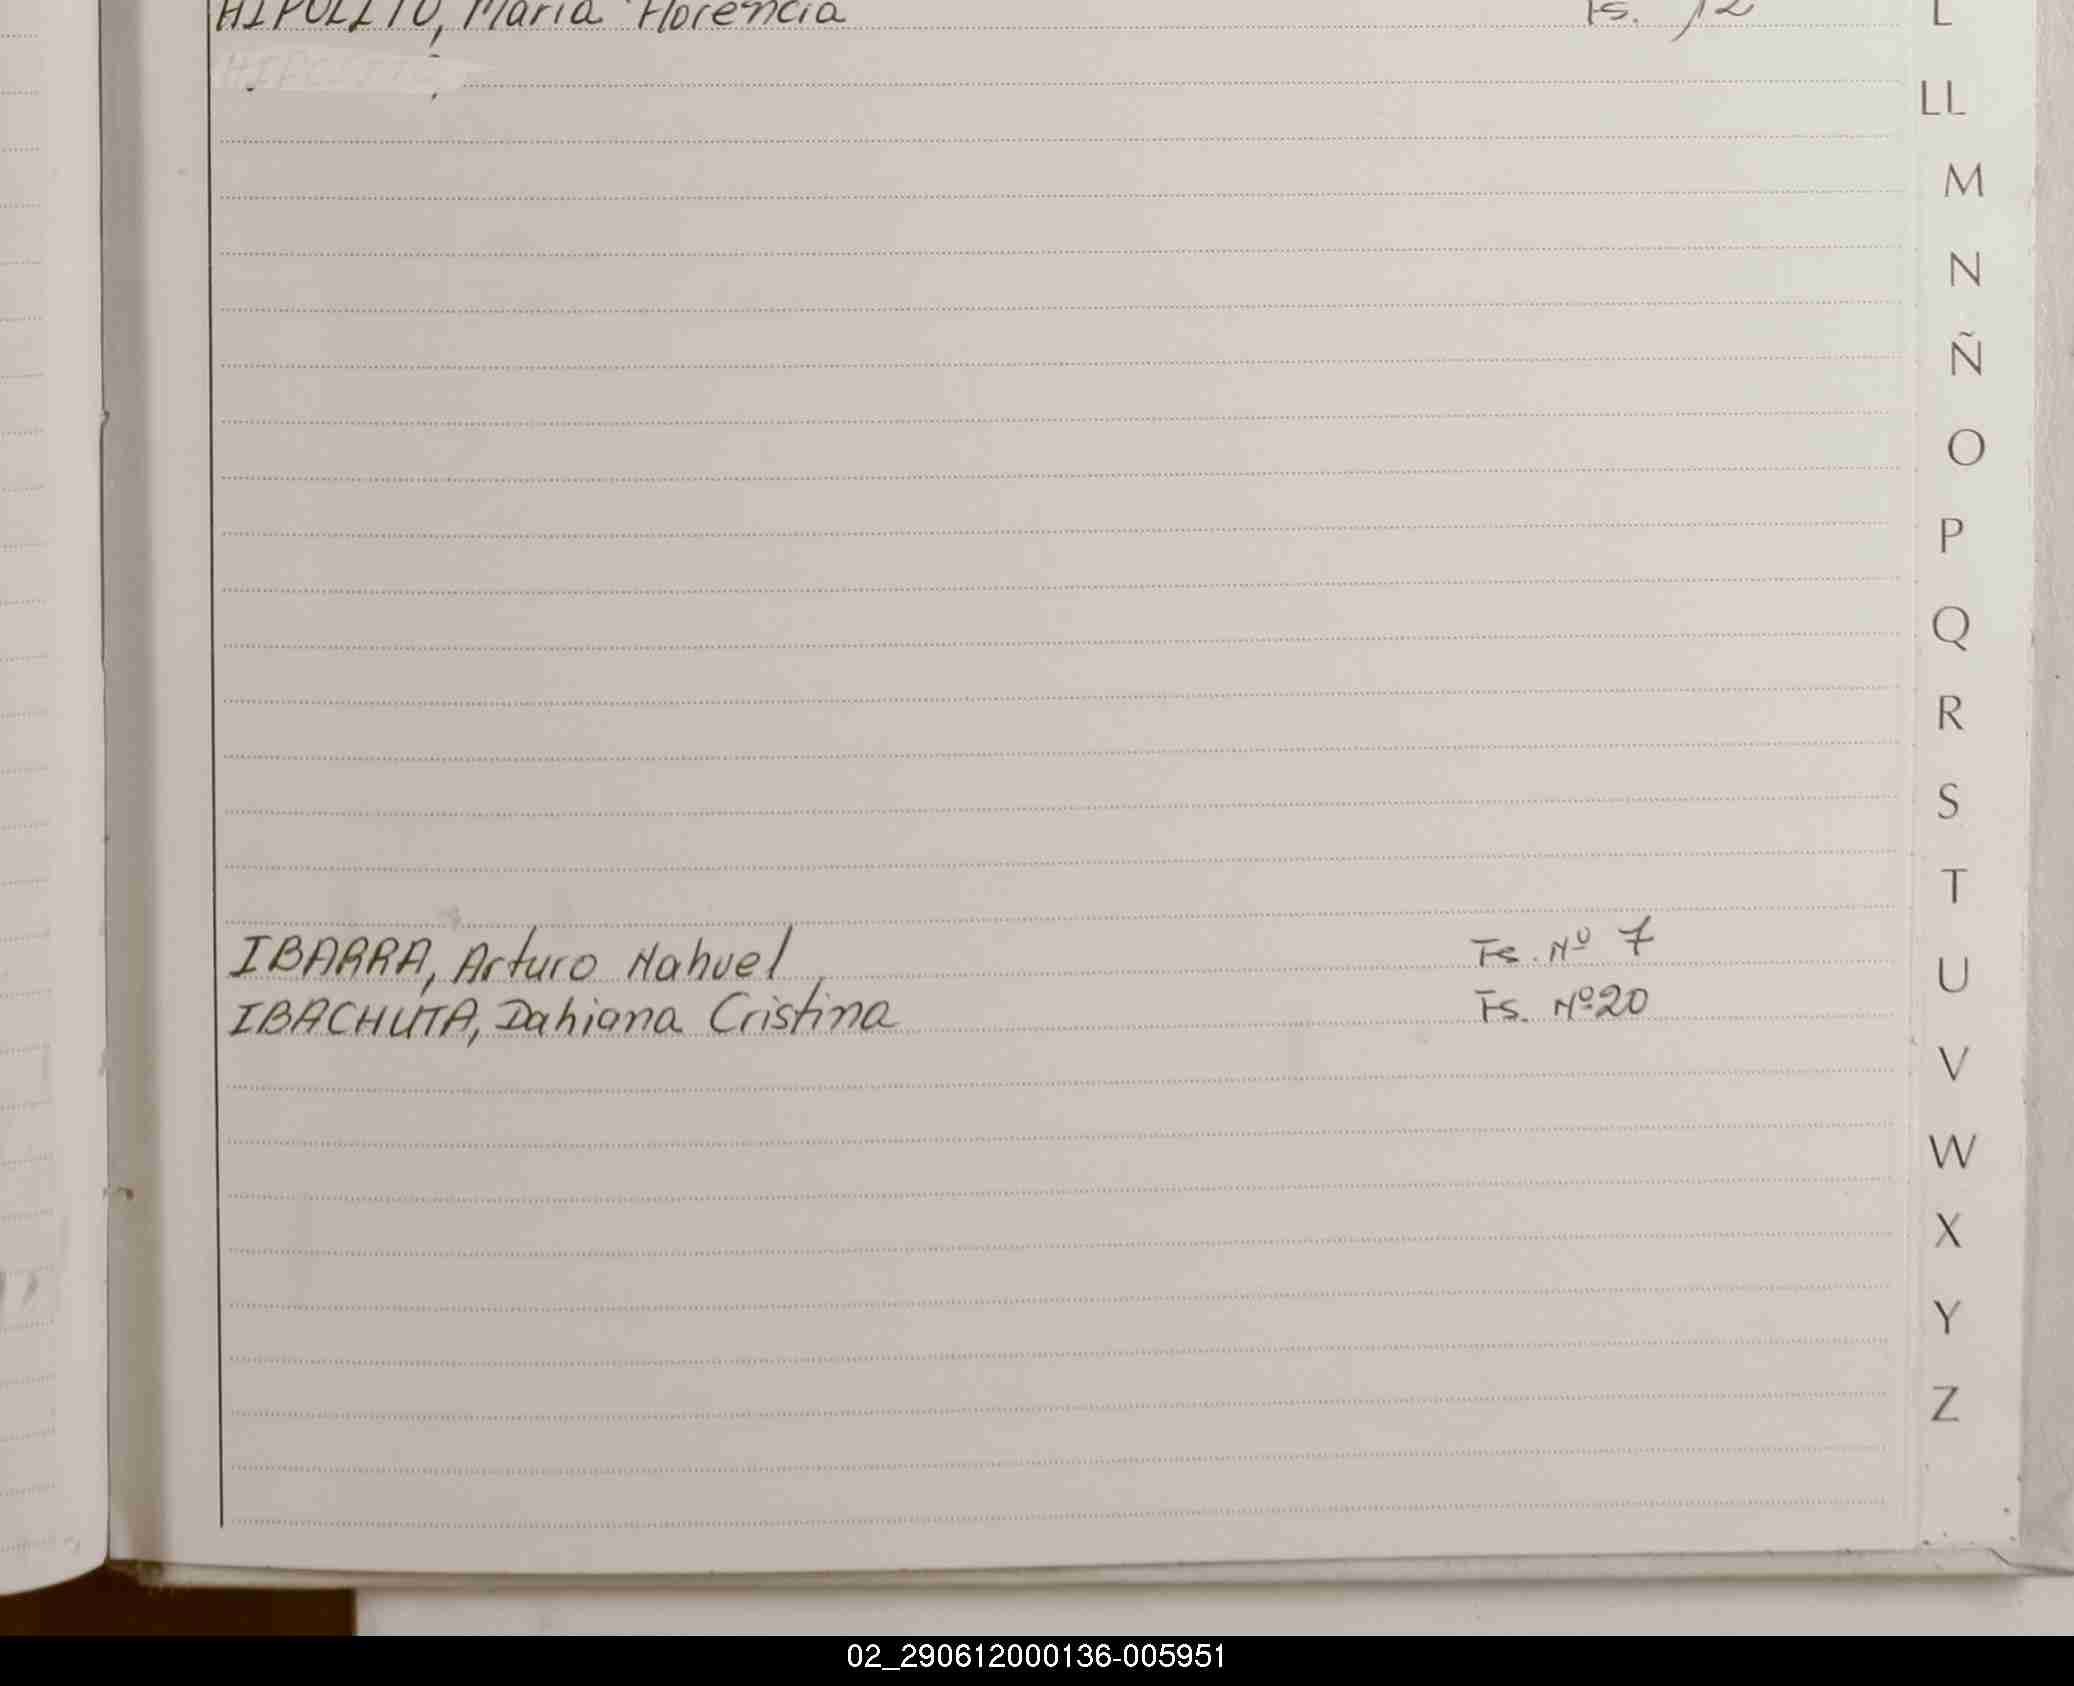 HIPOLITO, María Florencia Fs. 12
L
LL
M
N
Ñ
O
P
Q
R
S
T
IBARRA, Arturo Nahuel Fs. Nº 7
U
IBACHUTA, Dahiana Cristina Fs. Nº 20
V
W
X
Y
Z
02_290612000136-005951